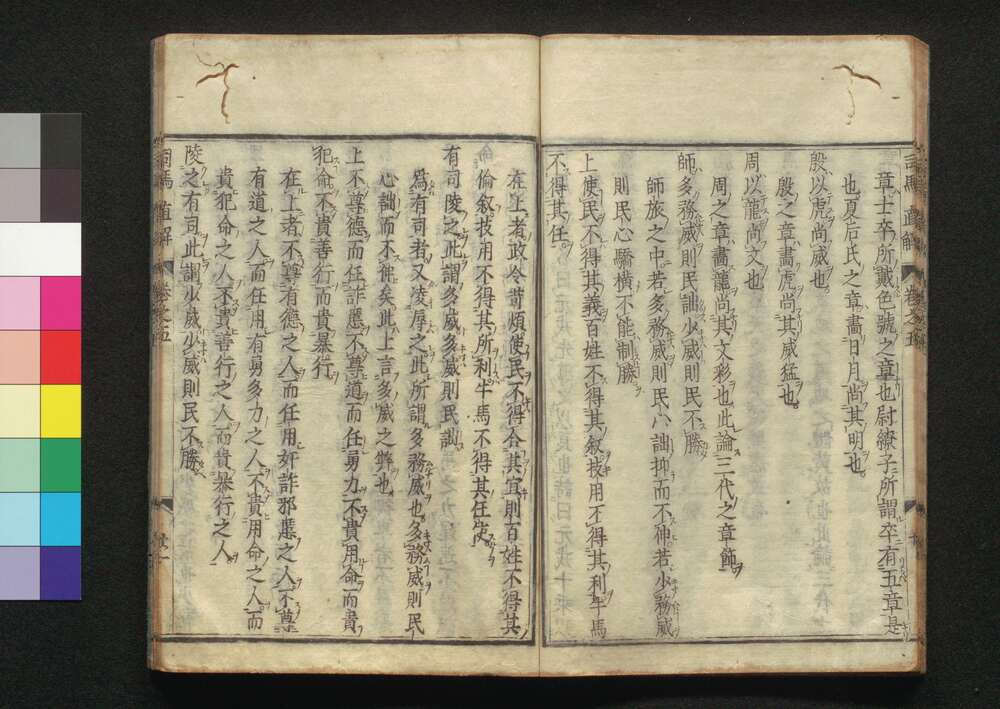 章士卒所戴色號之章也尉繚子所謂卒有五章是
也夏后氏之章畵日月尚其明也
殷以虎尚威也
殷之章畵虎尚其威猛也
周以龍尚文也
周之章畵龍尚其文彩也此論三代之章飾
師多務威則民詘少威則民不勝
師旅之中若多務威則民心詘抑而不伸若少務威
則民心驕橫不能制勝
上使民不得其義百姓不得其叙技用不得其利牛馬
不得其任
在上者政令苛煩使民不得合其宜則百姓不得其
倫叙技用不得其所利牛馬不得其任使
有司陵之此謂多威多威則民詘
爲有司者又淩辱之此所謂多務威也多務威則民
心詘而不伸矣此上言多威之弊也
上不尊德而任詐慝不尊道而任勇力不貴用命而貴
犯命不貴善行而貴暴行
在上者不尊有德之人而任用奸詐邪慝之人不尊
有道之人而任用有勇多力之人不貴用命之人而
貴犯命之人不貴善行之人而貴暴行之人
陵之有司此謂少威少威則民不勝
司馬 直解 卷之五